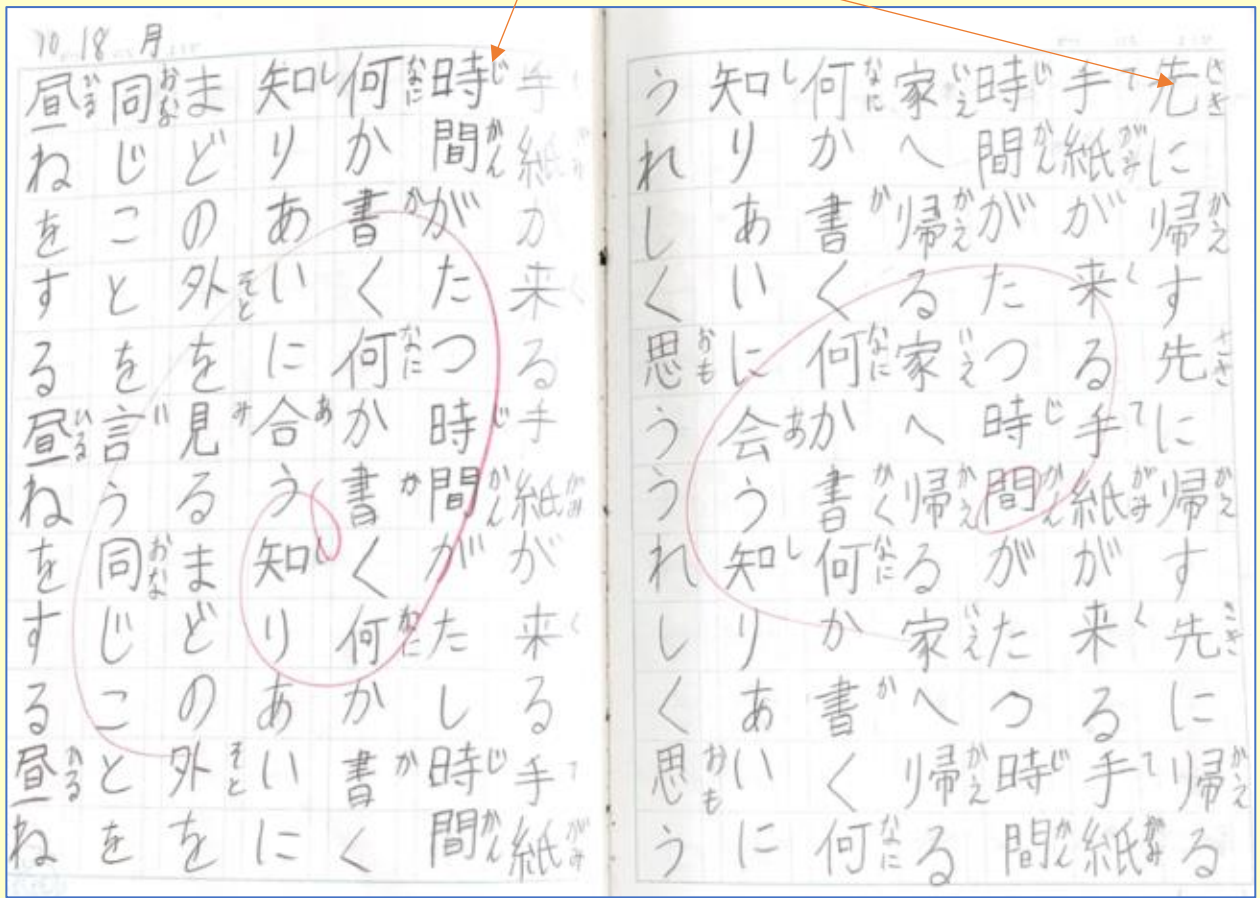 先に帰す先に帰す先に帰る
手紙が来る手紙が来る手紙
時間がたつ時間がたつ時間
家へ帰る家へ帰る家へ帰る
何か書く何か書何か書く何
知りあいに会う知りあいに
うれしく思ううれしく思う
10 18 月
手紙か来る手紙が来る手紙
時間がたつ時間がたし時間
何か書く何か書く何か書く
知りあいに合う知りあいに
まどの外を見るまどの外を
同じことを言う同じことを
昼ねをする昼ねをする昼ね